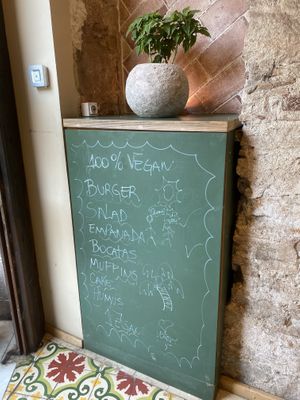 100% VEGAN
BURGER
SALAD
EMPANADA
BOCATAS
MUFFINS
CAKE
HUMUS